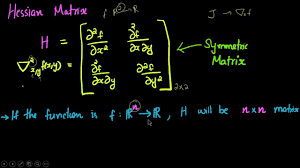 Hessian Matrix
f: ℝ² → ℝ
J → ∇f
H = [ ∂²f/∂x² ∂²f/∂x∂y
∇²x,y f(x,y) ∂²f/∂x∂y ∂²f/∂y² ] 2x2
Symmetric
Matrix
→ If the function is f: ℝⁿ → ℝ, H will be n x n matrix